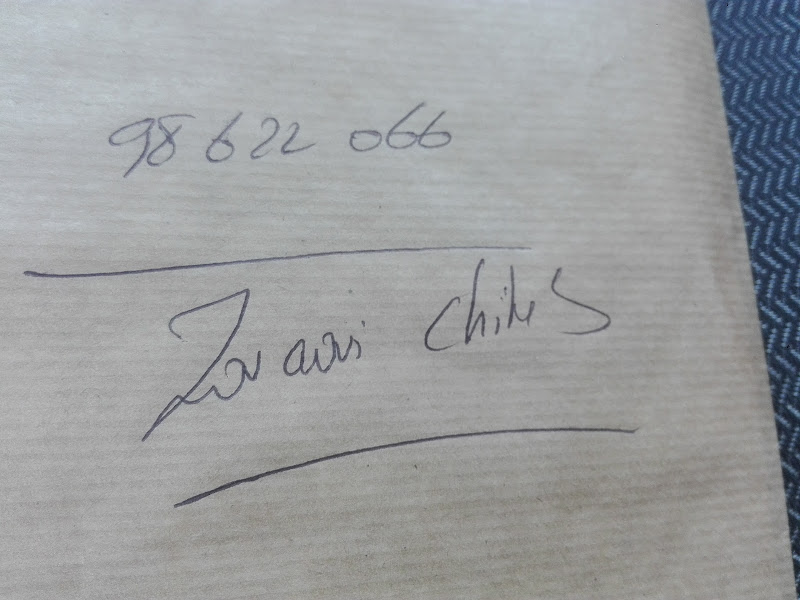 98 622 066
Zouaoui Chiheb